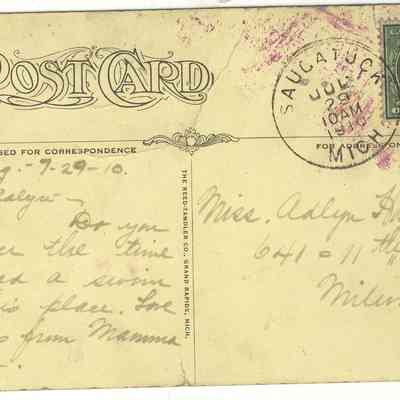 POST CARD
SED FOR CORRESPONDENCE
FOR ADDRES
SAUGATUCK
JUL
29
10AM
1910
MICH
THE REED-TANDLER CO., GRAND RAPIDS, MICH.
g. - 7-29-10.
Do you
the time
a swim
is place. Love
from Mamma
Miss. Adlyn H
641 - 11 th
Milw